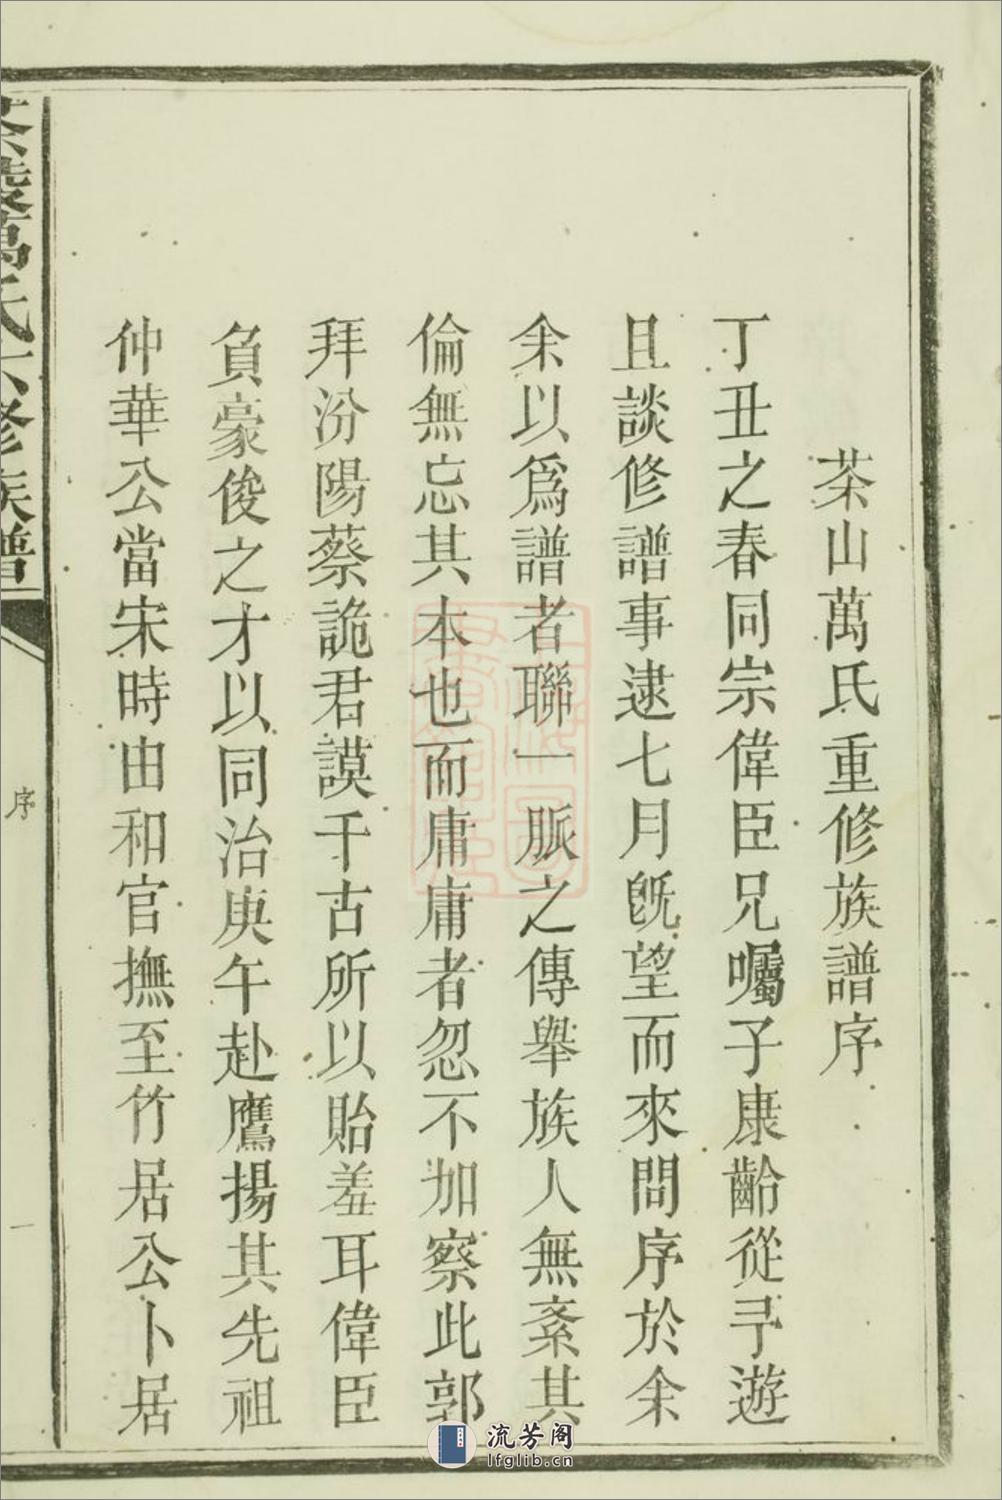 茶山萬氏重修族譜序
丁丑之春同宗偉臣兄囑子康齡從予遊
且談修譜事逮七月旣望而來問序於余
余以爲譜者聯一脈之傳舉族人無紊其
倫無忘其本也而庸庸者忽不加察此郭
拜汾陽蔡詭君謨千古所以貽羞耳偉臣
負豪俊之才以同治庚午赴鷹揚其先祖
仲華公當宋時由和官撫至竹居公卜居
萬氏六修族譜
序
一
流芳阁
lfglib.cn